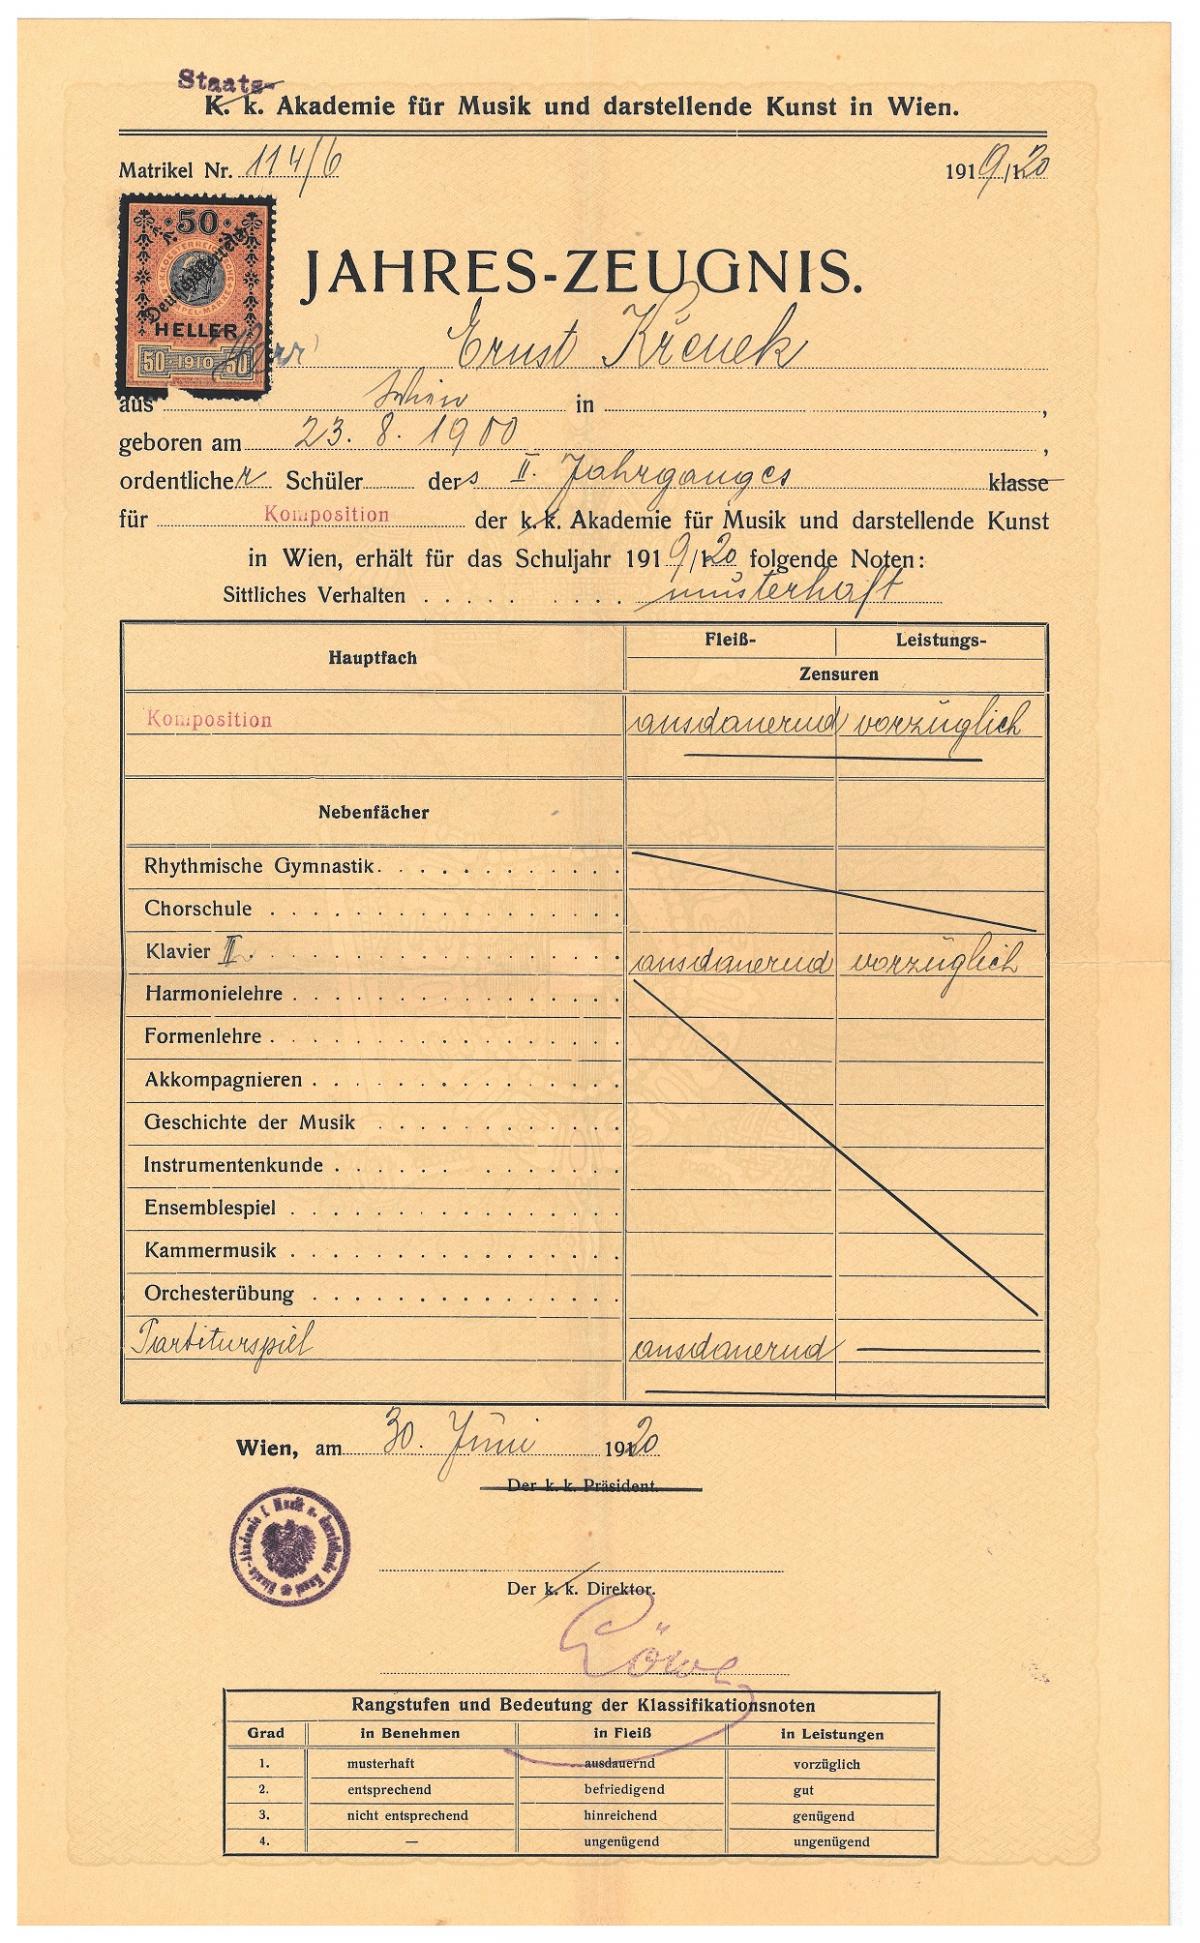 Staats-
K. k. Akademie für Musik und darstellende Kunst in Wien.
Matrikel Nr. 114/6 1919/20
50
Deutschösterreich
HELLER
50 1910 50
JAHRES-ZEUGNIS.
Herr Ernst Křenek
aus Wien in ,
geboren am 23. 8. 1900 ,
ordentlicher Schüler des II. Jahrganges klasse
für Komposition der k. k. Akademie für Musik und darstellende Kunst
in Wien, erhält für das Schuljahr 1919/20 folgende Noten:
Sittliches Verhalten . . . . . . . . . musterhaft
Hauptfach Fleiß- Leistungs-
Zensuren
Komposition ausdauernd vorzüglich
Nebenfächer
Rhythmische Gymnastik
Chorschule
Klavier II. ausdauernd vorzüglich
Harmonielehre
Formenlehre
Akkompagnieren
Geschichte der Musik
Instrumentenkunde
Ensemblespiel
Kammermusik
Orchesterübung
Partiturspiel ausdauernd
Wien, am 30. Juni 1920
Der k. k. Präsident.
Staats-Akademie f. Musik u. darstellende Kunst
Der k. k. Direktor.
Löwe
Rangstufen und Bedeutung der Klassifikationsnoten
Grad in Benehmen in Fleiß in Leistungen
1. musterhaft ausdauernd vorzüglich
2. entsprechend befriedigend gut
3. nicht entsprechend hinreichend genügend
4. — ungenügend ungenügend